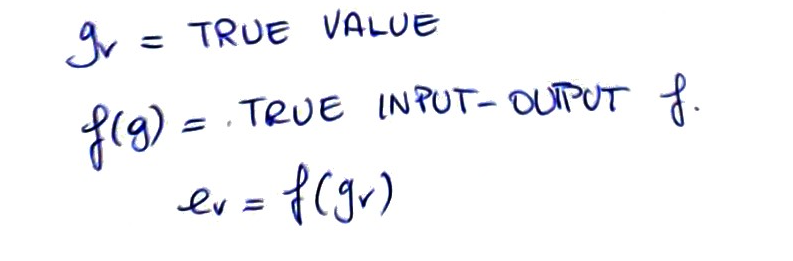 gv = TRUE VALUE
f(g) = TRUE INPUT-OUTPUT f.
ev = f(gv)